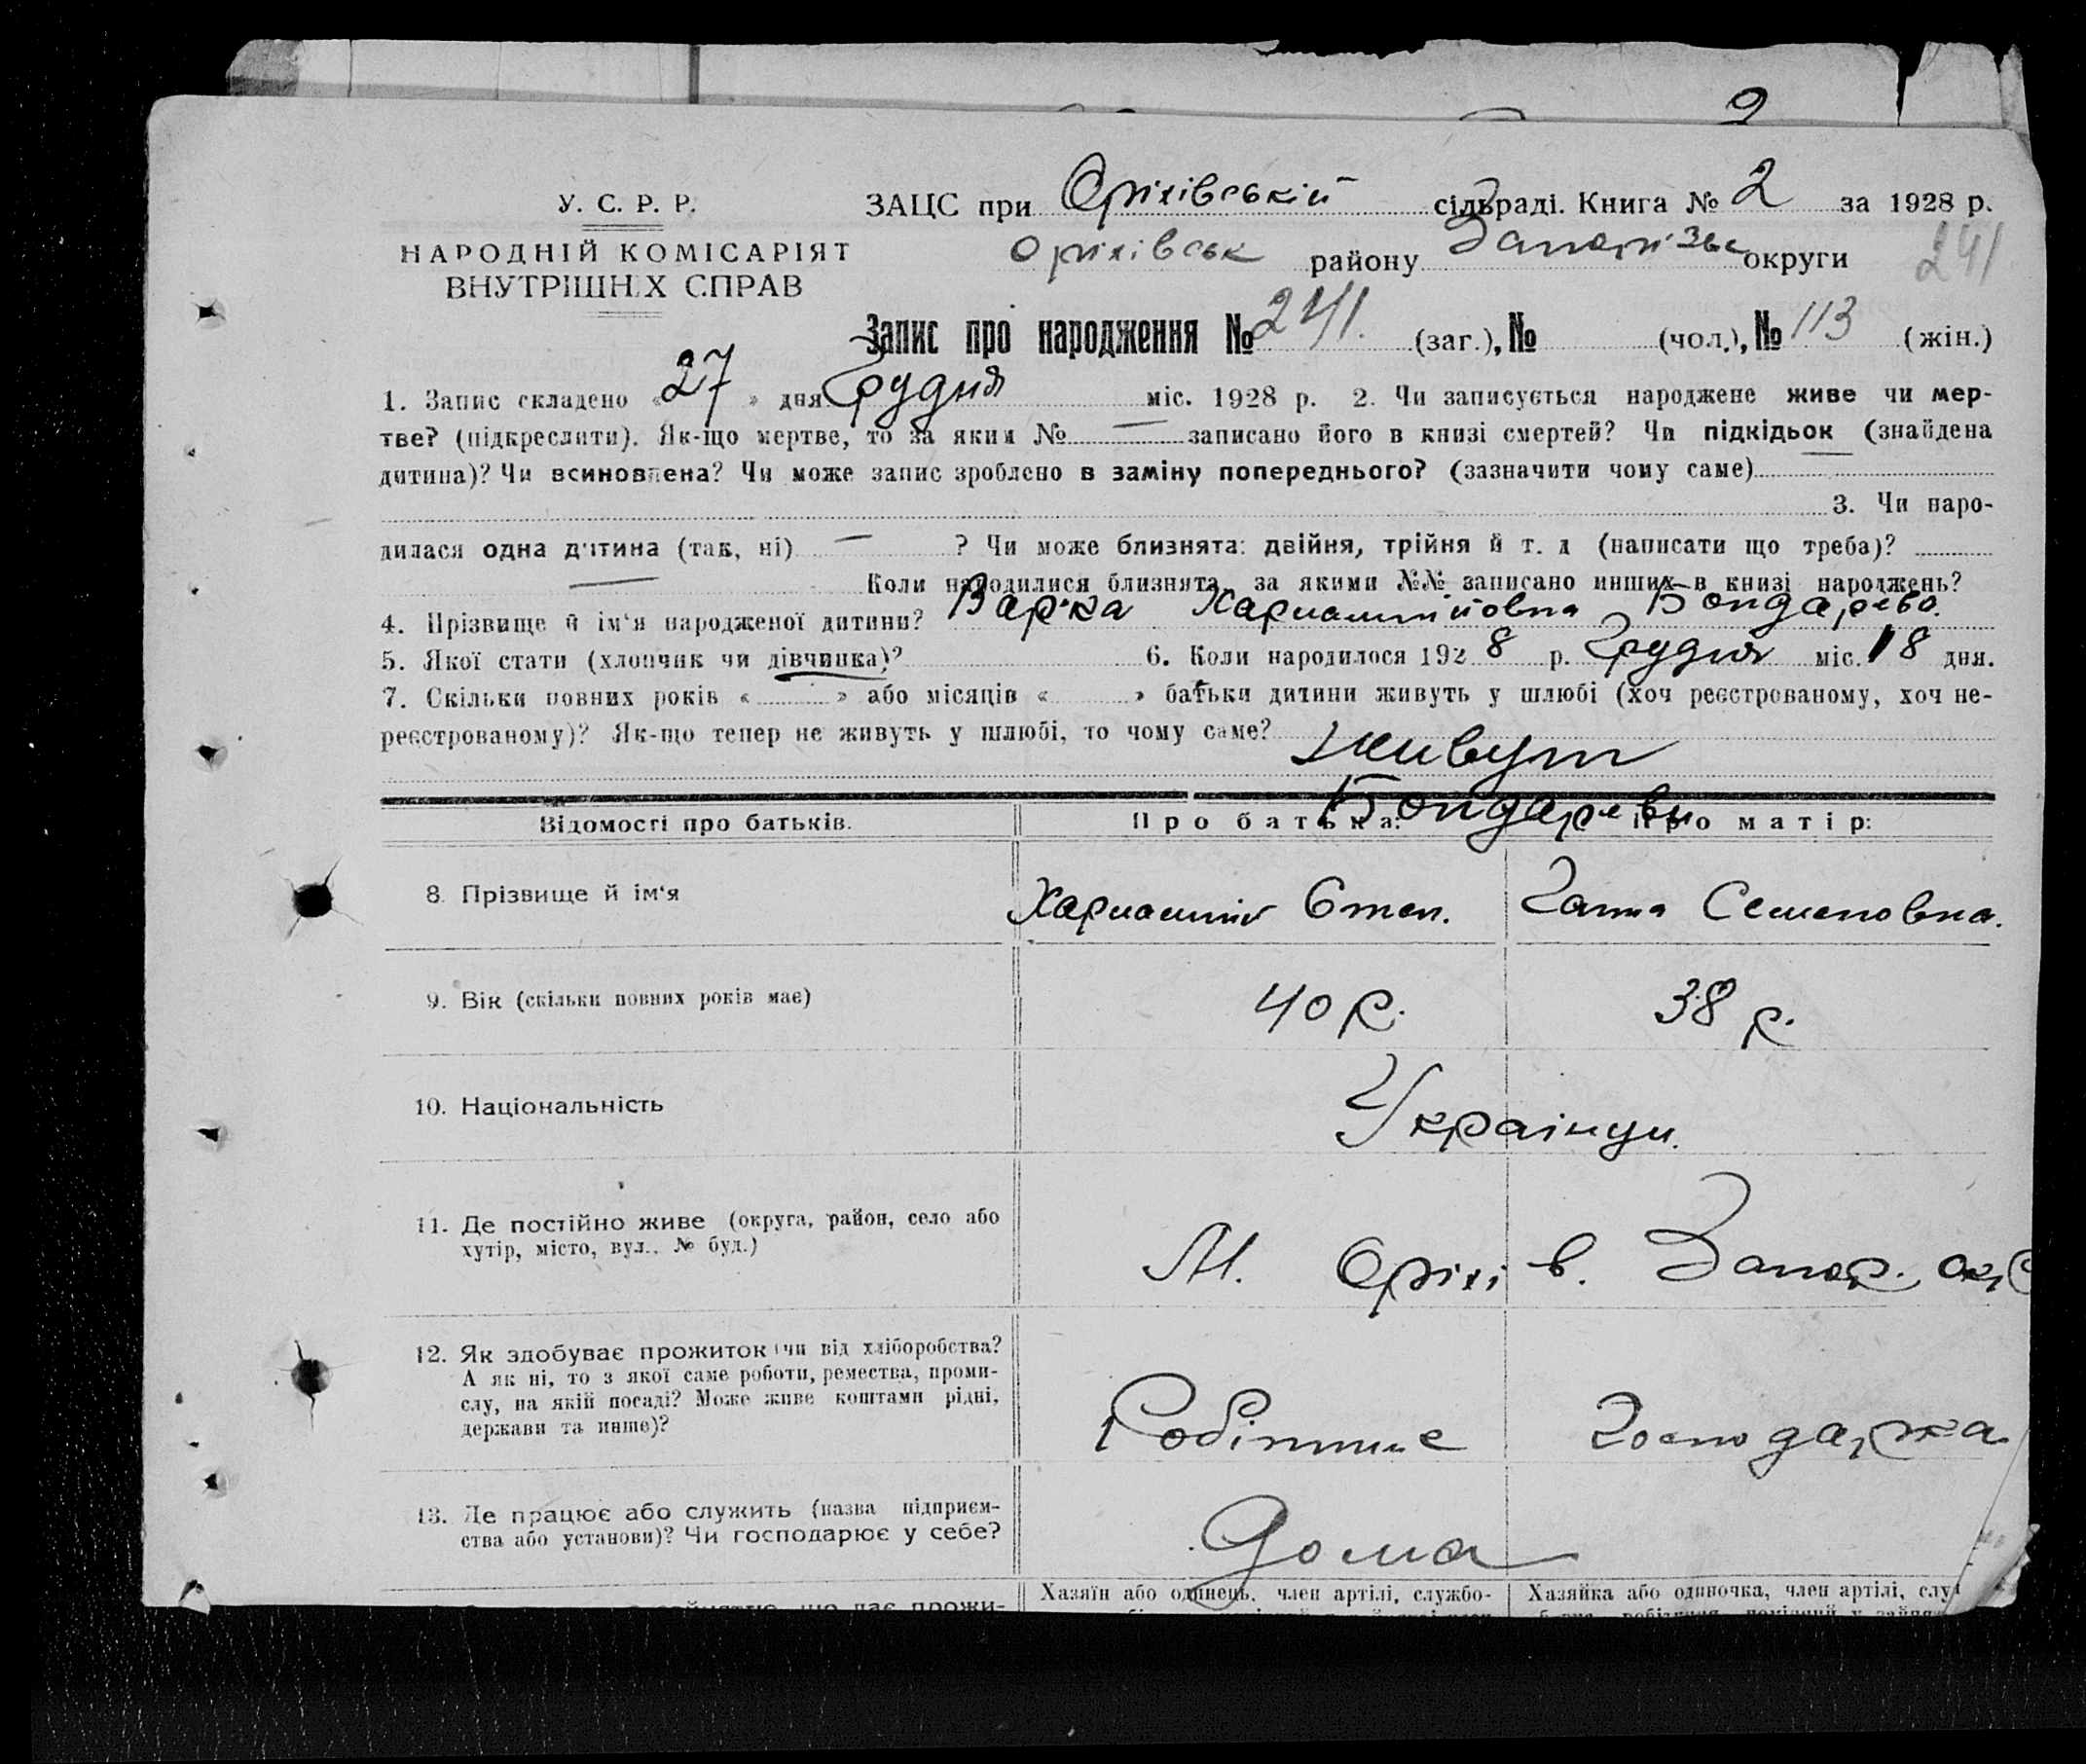 2
У. С. Р. Р.
НАРОДНІЙ КОМІСАРІЯТ
ВНУТРІШНІХ СПРАВ
ЗАЦС при Оріхівській сільраді. Книга № 2 за 1928 р.
Оріхівськ району округи 241
Запис про народження № 241. (заг.), № (чол.), № 113 (жін.)
1. Запис складено « 27 » дня Грудня міс. 1928 р. 2. Чи записується народжене живе чи мер-
тве? (підкреслити). Як-що мертве, то за яким № — записано його в книзі смертей? Чи підкідьок (знайдена
дитина)? Чи всиновлена? Чи може запис зроблено в заміну попереднього? (зазначити чому саме)
3. Чи наро-
дилася одна дитина (так, ні) — ? Чи може близнята: двійня, трійня й т. д (написати що треба)?
— Коли народилися близнята, за якими №№ записано инших в книзі народжень?
4. Прізвище й ім‘я народженої дитини? Варка Бондарево.
5. Якої стати (хлопчик чи дівчинка)? 6. Коли народилося 1928 р. Грудня міс. 18 дня.
7. Скільки повних років « » або місяців « » батьки дитини живуть у шлюбі (хоч реєстрованому, хоч не-
реєстрованому)? Як-що тепер не живуть у шлюбі, то чому саме?
живут
Бондареви
Відомості про батьків. Про батька: Про матір:
8. Прізвище й ім‘я Степ. Ганна Семеновна.
9. Вік (скільки повних років має) 40 р. 38 р.
10. Національність Українци.
11. Де постійно живе (округа, район, село або
хутір, місто, вул., № буд.) М. Оріхів. Запор. окр
12. Як здобуває прожиток (чи від хліборобства?
А як ні, то з якої саме роботи, ремества, проми-
слу, на якій посаді? Може живе коштами рідні,
держави та инше)? Господарка
13. Де працює або служить (назва підприєм-
ства або установи)? Чи господарює у себе? Дома
Хазяїн або одинець, член артілі, службо- Хазяйка або одиночка, член артілі, слу